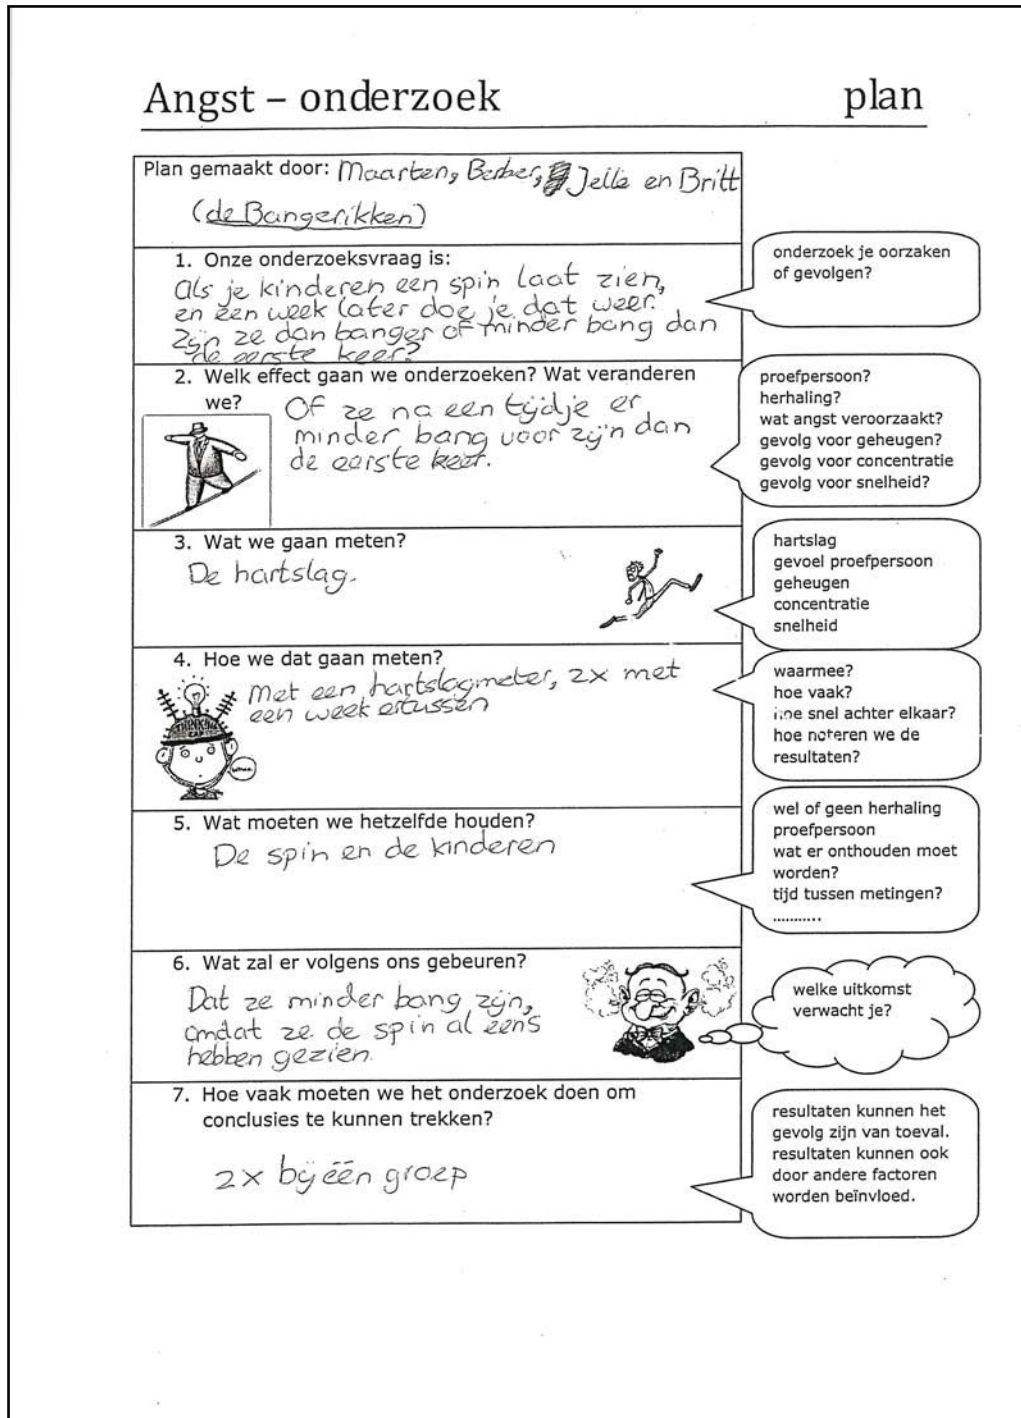 Angst – onderzoek plan
Plan gemaakt door: Maarten, Berber, Jelle en Britt
(de Bangerikken)
1. Onze onderzoeksvraag is:
Als je kinderen een spin laat zien,
en een week later doe je dat weer.
Zijn ze dan banger of minder bang dan
de eerste keer?
onderzoek je oorzaken
of gevolgen?
2. Welk effect gaan we onderzoeken? Wat veranderen
we?
Of ze na een tijdje er
minder bang voor zijn dan
de eerste keer.
proefpersoon?
herhaling?
wat angst veroorzaakt?
gevolg voor geheugen?
gevolg voor concentratie
gevolg voor snelheid?
3. Wat we gaan meten?
De hartslag.
hartslag
gevoel proefpersoon
geheugen
concentratie
snelheid
4. Hoe we dat gaan meten?
Met een hartslagmeter, 2x met
een week ertussen
THINKING
CAP
waarmee?
hoe vaak?
hoe snel achter elkaar?
hoe noteren we de
resultaten?
5. Wat moeten we hetzelfde houden?
De spin en de kinderen
wel of geen herhaling
proefpersoon
wat er onthouden moet
worden?
tijd tussen metingen?
...........
6. Wat zal er volgens ons gebeuren?
Dat ze minder bang zijn,
omdat ze de spin al eens
hebben gezien.
welke uitkomst
verwacht je?
7. Hoe vaak moeten we het onderzoek doen om
conclusies te kunnen trekken?
2x bij één groep
resultaten kunnen het
gevolg zijn van toeval.
resultaten kunnen ook
door andere factoren
worden beïnvloed.